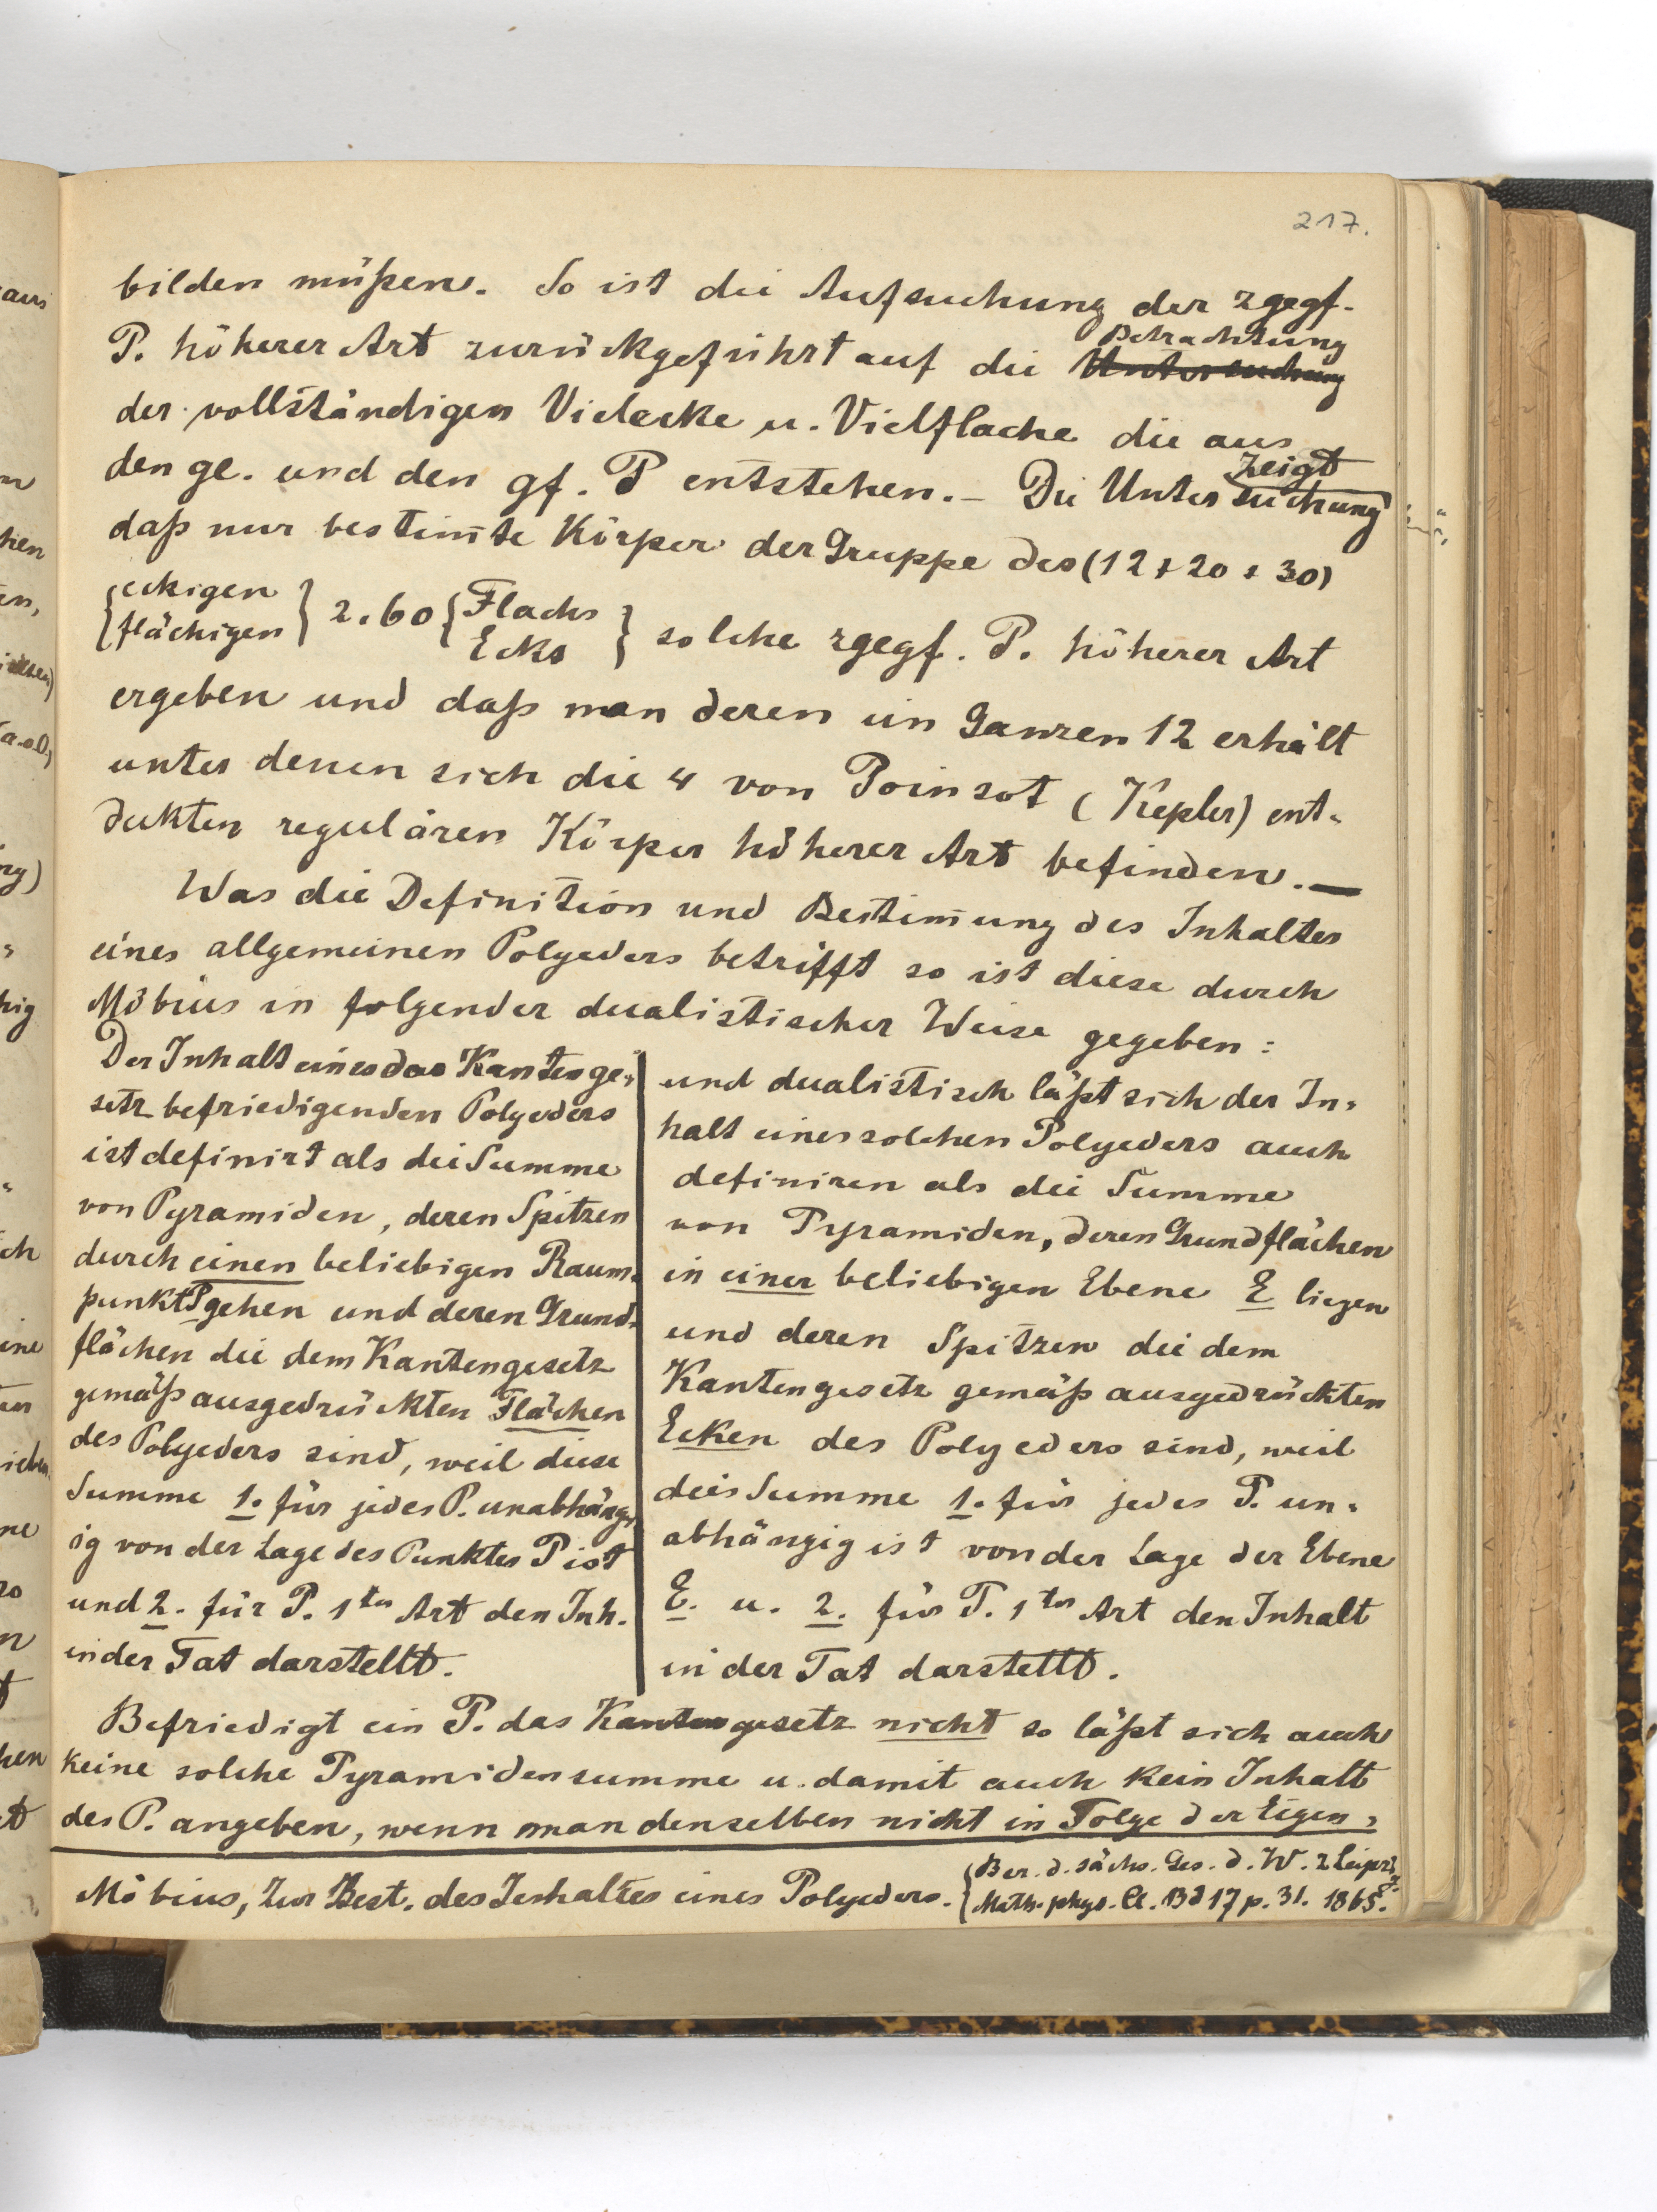 217.
bilden müßen. So ist die Aufsuchung der zgegf.
P. höherer Art zurückgeführt auf die Betrachtung ~~Untersuchung~~
der vollständigen Vielecke u. Vielflache die aus
den ge. und den gf. P entstehen. – Die Untersuchung zeigt
daß nur bestim̄te Körper der Gruppe des (12+20+30)
{eckigen flächigen} 2.60 {Flachs Ecks} solche zgegf. P. höherer Art
ergeben und daß man deren im Ganzen 12 erhält
unter denen sich die 4 von Poinsot (Kepler) ent-
dekten regulären Körper höherer Art befinden. —
Was die Definition und Bestim̄ung des Inhaltes
eines allgemeinen Polyeders betrifft so ist diese durch
Möbius in folgender dualistischer Weise gegeben:
Der Inhalt eines das Kantenge-
setz befriedigenden Polyeders
ist definirt als die Summe
von Pyramiden, deren Spitzen
durch einen beliebigen Raum-
punkt P gehen und deren Grund-
flächen die dem Kantengesetz
gemäß ausgedrückten Flächen
des Polyeders sind, weil diese
Summe 1. für jedes P. unabhäng-
ig von der Lage des Punktes P ist
und 2. für P. 1ter Art den Inh.
in der Tat darstellt.
und dualistisch läßt sich der In-
halt eines solchen Polyeders auch
definiren als die Summe
von Pyramiden, deren Grundflächen
in einer beliebigen Ebene E liegen
und deren Spitzen die dem
Kantengesetz gemäß ausgedrückten
Ecken des Polyeders sind, weil
die Summe 1. für jedes P. un-
abhängig ist von der Lage der Ebene
E. u. 2. für P. 1ter Art den Inhalt
in der Tat darstellt.
Befriedigt ein P. das Kantengesetz nicht so läßt sich auch
keine solche Pyramidensumme u. damit auch kein Inhalt
des P. angeben, wenn man denselben nicht in Folge der Eigen-
Möbius, Zur Best. des Inhaltes eines Polyeders. {Ber. d. sächs. Ges. d. W. z Leipzig.
Math.-phys. Cl. Bd 17 p. 31. 1865.